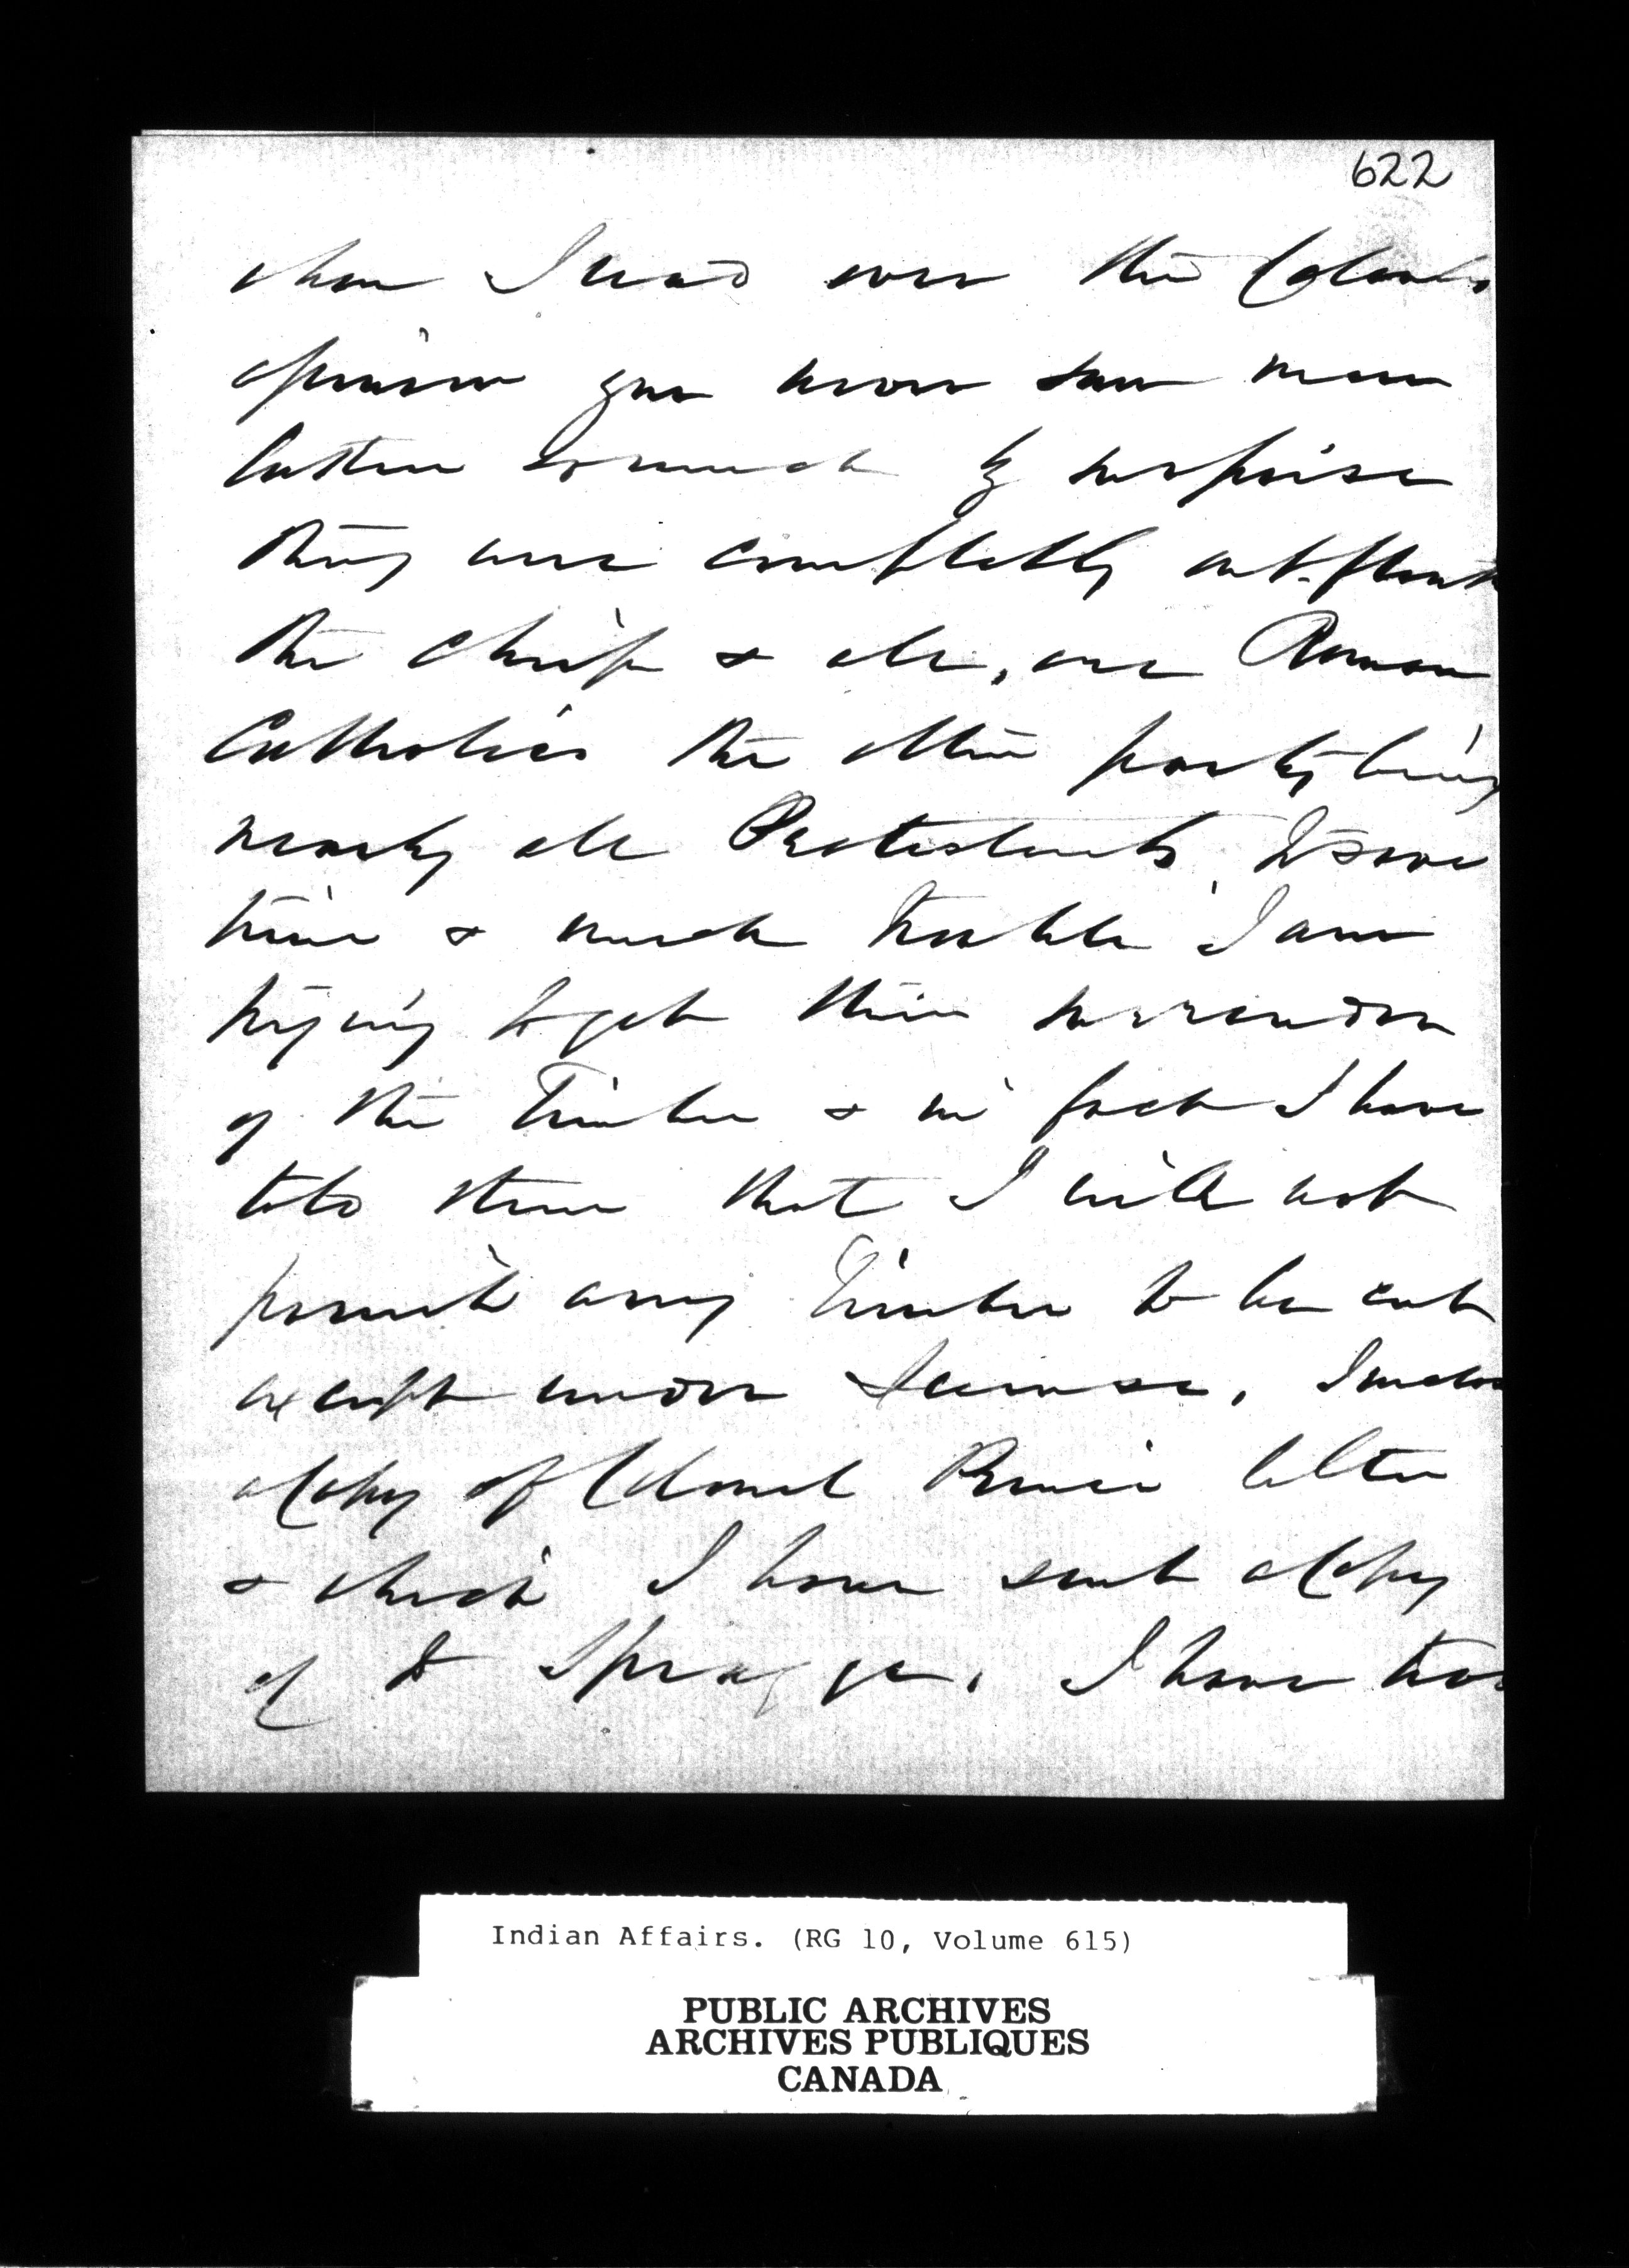 622
when I read over the Colonels
opinion you never saw men
taken so much by surprise
they were completely out-flank
the Chief & all, are Roman
Catholics the other party being
nearly all Protestants, To save
time & much trouble I am
trying to get their surrender
of the Timber & in fact I have
told them that I will not
permit any Timber to be cut
except under License, I enclose
a Copy of Colonel Prince letter
& which I have sent a Copy
of to Spragge. I have
Indian Affairs. (RG 10, Volume 615)
PUBLIC ARCHIVES
ARCHIVES PUBLIQUES
CANADA